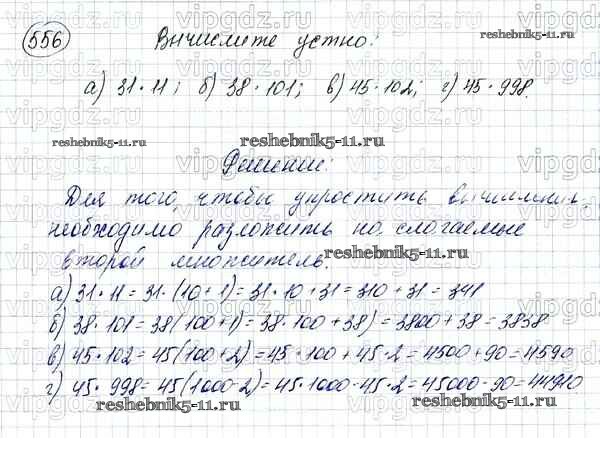 556 Вычислите устно:
reshebnik5-11.ru
а) 31·11; б) 38·101; в) 45·102; г) 45·998.
reshebnik5-11.ru
reshebnik5-11.ru
Решение:
Для того, чтобы упростить вычисления,
необходимо разложить на слагаемые
второй множитель.
reshebnik5-11.ru
а) 31·11 = 31·(10+1) = 31·10+31 = 310+31 = 341
б) 38·101 = 38(100+1) = 38·100+38) = 3800+38 = 3838
в) 45·102 = 45(100+2) = 45·100+45·2 = 4500+90 = 4590
г) 45·998 = 45(1000-2) = 45·1000-45·2 = 45000-90 = 44910.
reshebnik5-11.ru
reshebnik5-11.ru
vipgdz.ru